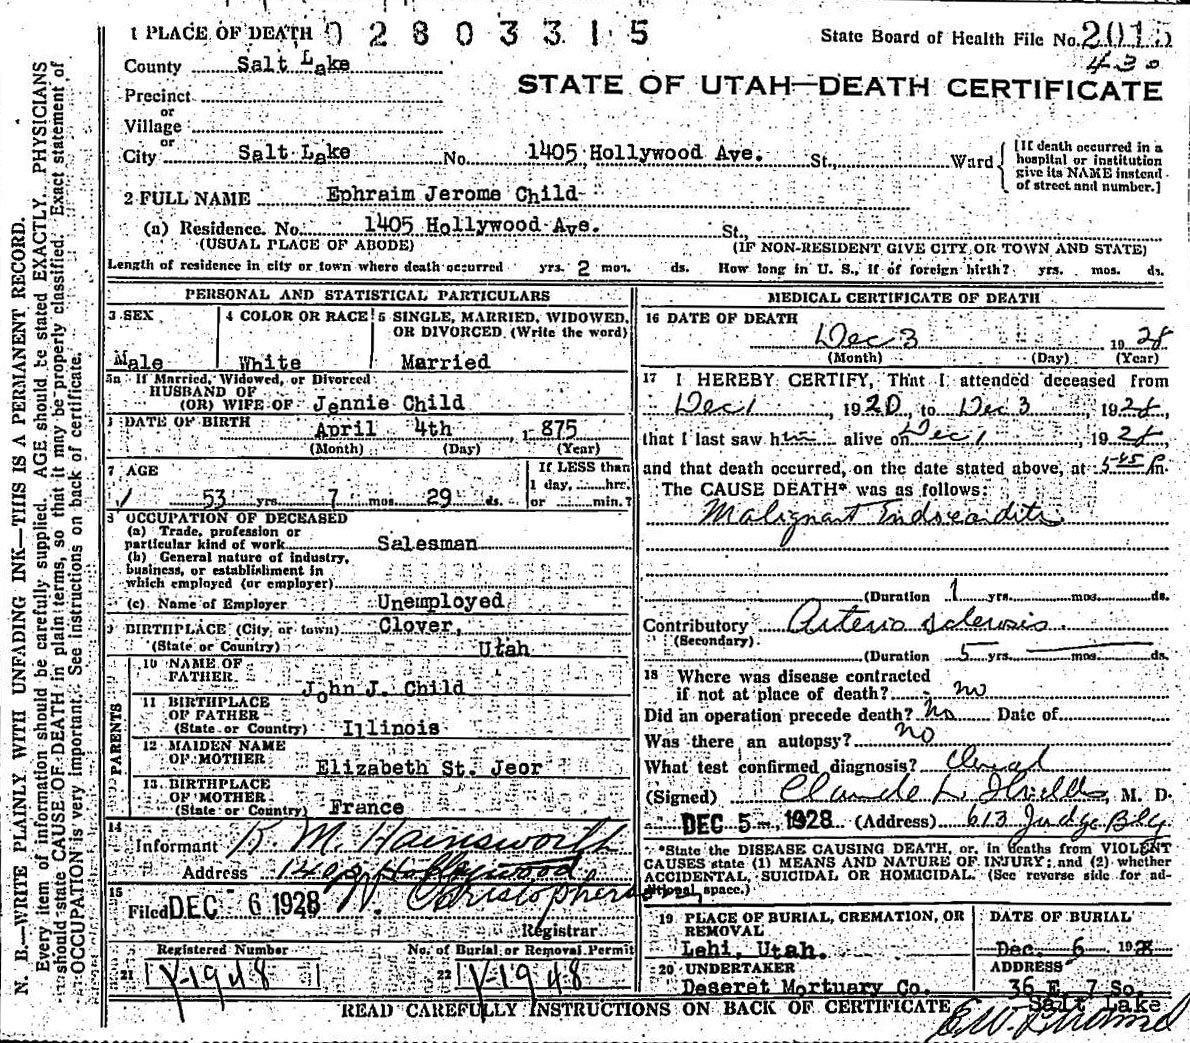 1 PLACE OF DEATH 02803315
State Board of Health File No. 2015
430
County Salt Lake
STATE OF UTAH—DEATH CERTIFICATE
Precinct
or
Village
or
City Salt Lake No. 1405 Hollywood Ave. St., Ward
[If death occurred in a hospital or institution give its NAME instead of street and number.]
2 FULL NAME Ephraim Jerome Child
(a) Residence. No. 1405 Hollywood Ave. St.,
(USUAL PLACE OF ABODE) (IF NON-RESIDENT GIVE CITY OR TOWN AND STATE)
Length of residence in city or town where death occurred yrs. 2 mos. ds. How long in U. S., if of foreign birth? yrs. mos. ds.
PERSONAL AND STATISTICAL PARTICULARS
3 SEX
Male
4 COLOR OR RACE
White
5 SINGLE, MARRIED, WIDOWED, OR DIVORCED (Write the word)
Married
5a If Married, Widowed, or Divorced
HUSBAND OF
(OR) WIFE OF Jennie Child
DATE OF BIRTH April 4th, 1875
(Month) (Day) (Year)
7 AGE
53 yrs. 7 mos. 29 ds.
If LESS than
1 day, hrs.
or min.?
OCCUPATION OF DECEASED
(a) Trade, profession or
particular kind of work Salesman
(b) General nature of industry,
business, or establishment in
which employed (or employer)
(c) Name of Employer Unemployed
9 BIRTHPLACE (City, or town) Clover,
(State or Country) Utah
PARENTS
10 NAME OF
FATHER John J. Child
11 BIRTHPLACE
OF FATHER
(State or Country) Illinois
12 MAIDEN NAME
OF MOTHER Elizabeth St. Jeor
13 BIRTHPLACE
OF MOTHER
(State or Country) France
14
Informant R. M. Hainsworth
Address Hollywood
15
Filed DEC 6 1928 Christophers
Registrar
Registered Number
21 Y-1948
No. of Burial or Removal Permit
22 Y-1948
MEDICAL CERTIFICATE OF DEATH
16 DATE OF DEATH
Dec 3 1928
(Month) (Day) (Year)
17 I HEREBY CERTIFY, That I attended deceased from
Dec 1, 1920, to Dec 3 1928,
that I last saw him alive on Dec 1, 1928
and that death occurred, on the date stated above, at 545 P.m.
The CAUSE DEATH* was as follows:
Malignant Endocarditis
(Duration 1 yrs. mos. ds.
Contributory Arterio sclerosis
(Secondary)
(Duration 5 yrs. mos. ds.
18 Where was disease contracted
if not at place of death? no
Did an operation precede death? No Date of
Was there an autopsy? No
What test confirmed diagnosis? Clinical
(Signed) Claude L. Shields, M. D.
DEC 5 1928 (Address) 613 Judge Bldg
*State the DISEASE CAUSING DEATH, or, in deaths from VIOLENT
CAUSES state (1) MEANS AND NATURE OF INJURY; and (2) whether
ACCIDENTAL, SUICIDAL OR HOMICIDAL. (See reverse side for ad-
ditional space.)
19 PLACE OF BURIAL, CREMATION, OR
REMOVAL
Lehi, Utah.
DATE OF BURIAL
Dec. 6 1928
20 UNDERTAKER
Deseret Mortuary Co.
ADDRESS
36 E. 7 So.
Salt Lake
READ CAREFULLY INSTRUCTIONS ON BACK OF CERTIFICATE
N. B.—WRITE PLAINLY WITH UNFADING INK—THIS IS A PERMANENT RECORD.
Every item of information should be carefully supplied. AGE should be stated EXACTLY. PHYSICIANS
should state CAUSE OF DEATH in plain terms, so that it may be properly classified. Exact statement of
OCCUPATION is very important. See instructions on back of certificate.